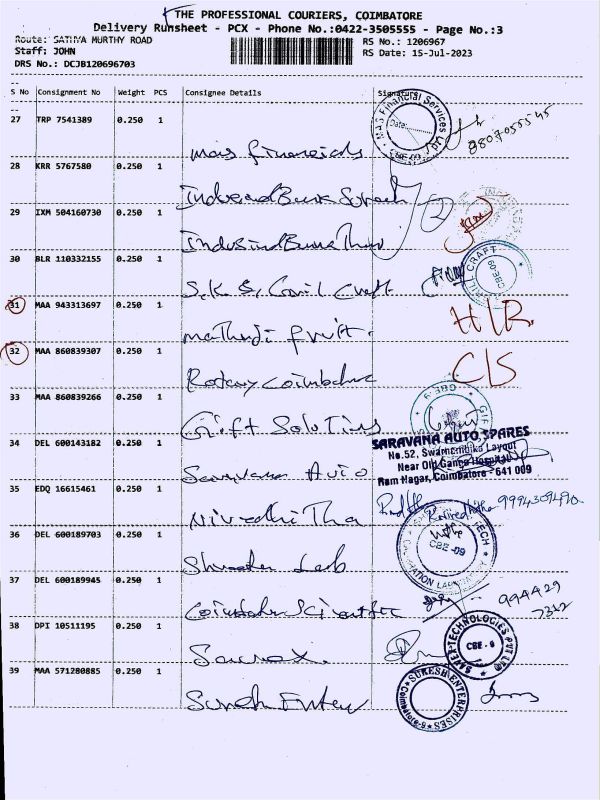 THE PROFESSIONAL COURIERS, COIMBATORE
Delivery Runsheet - PCX - Phone No.:0422-3505555 - Page No.:3
Route: SATHYA MURTHY ROAD RS No.: 1206967
Staff: JOHN RS Date: 15-Jul-2023
DRS No.: DCJB120696703
S No Consignment No Weight PCS Consignee Details Signature
27 TRP 7541389 0.250 1
Mas Financials MAS Financial Services Ltd Date: CBE-09 9807055545
28 KRR 5767580 0.250 1
29 IXM 504160730 0.250 1
30 BLR 110332155 0.250 1
S.K.S. Civil Craft CIVIL CRAFT CBE-09
31 MAA 943313697 0.250 1 H/R
fruit.
32 MAA 860839307 0.250 1 C/S
Rotary Coimbatore
33 MAA 860839266 0.250 1
Gift Solutions
34 DEL 600143182 0.250 1 SARAVANA AUTO SPARES
No.52, Swarnambika Layout
Near Old Ganga Hospital
Ram Nagar, Coimbatore - 641 009
Saravana Auto
35 EDQ 16615461 0.250 1
Nivedhitha
36 DEL 600189703 0.250 1 CBE-09
Lab
37 DEL 600189945 0.250 1
Coimbatore Scientific 994429
38 DPI 10511195 0.250 1 TECHNOLOGIES PVT LTD CBE - 9
39 MAA 571280885 0.250 1 SURESH ENTERPRISES Coimbatore-9
Suresh Enter